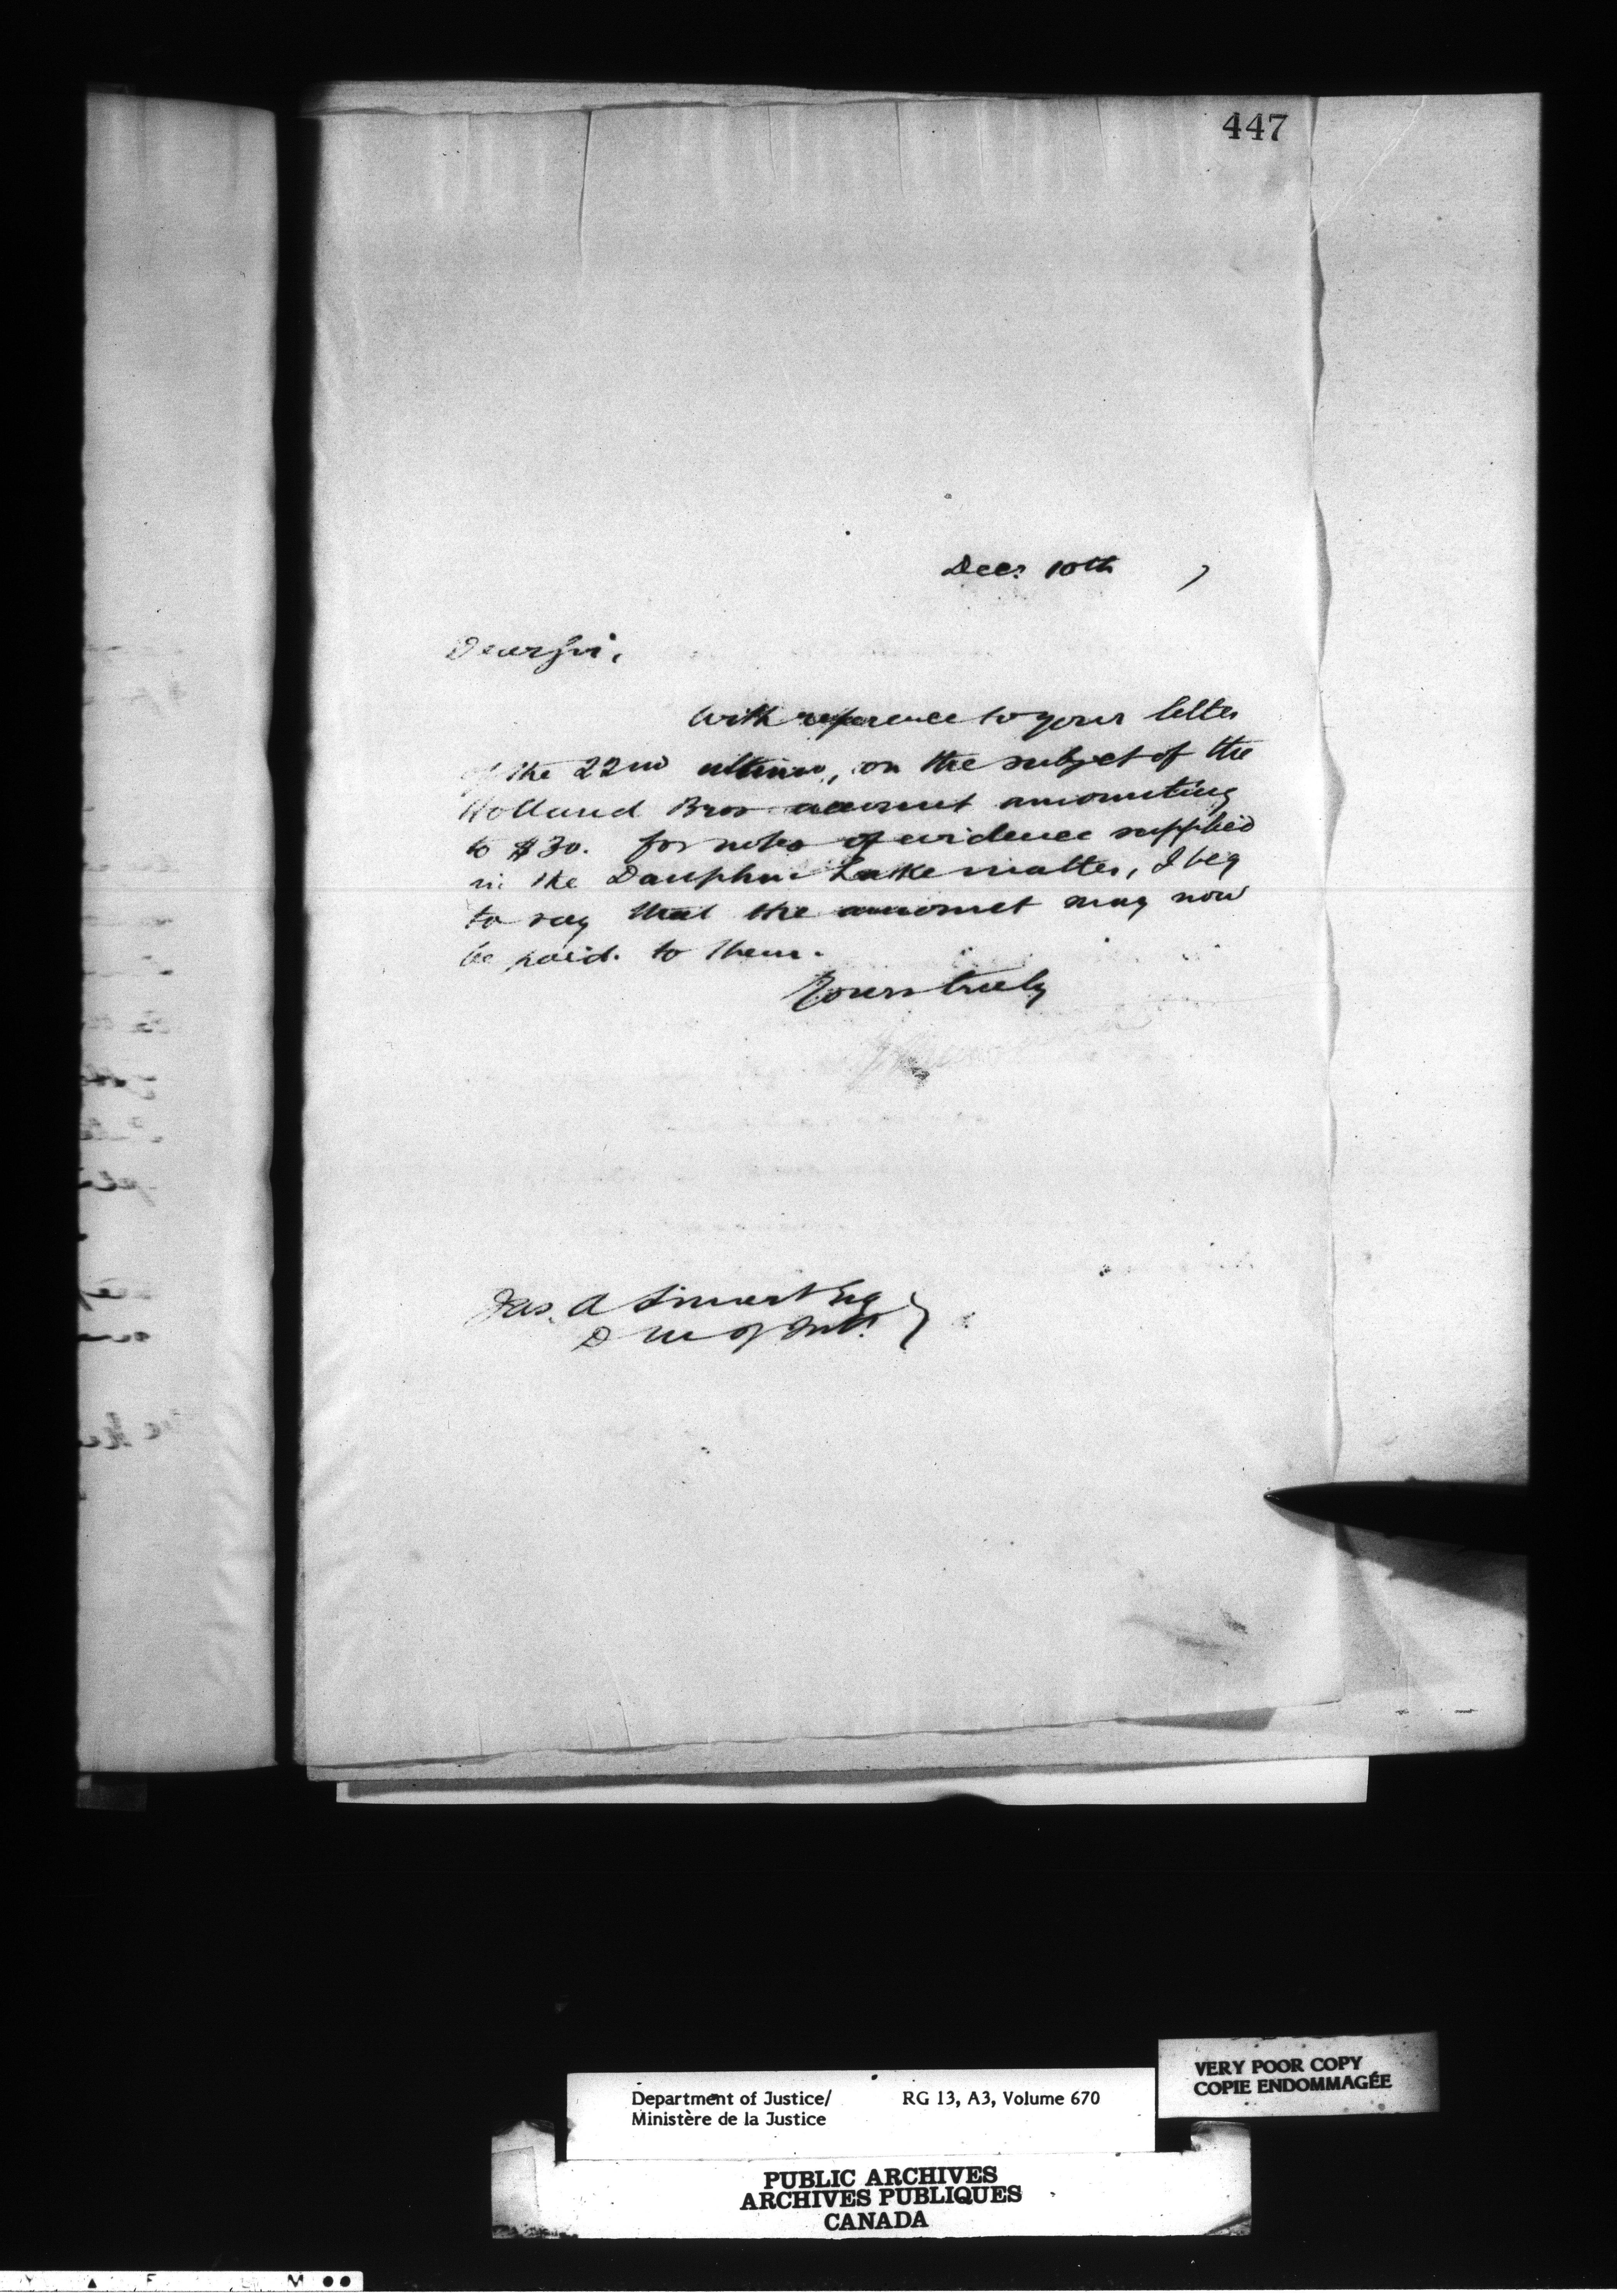 447
Decr 10th 7
Dear Sir,
With reference to your letter
of the 22nd ultimo, on the subject of the
Holland Bros account amounting
to $30. for notes of evidence supplied
in the Dauphin Lake matter, I beg
to say that the amount may now
be paid to them.
Yours truly
Jas. A Smart Esq
D M of Int.
Department of Justice/
Ministère de la Justice
RG 13, A3, Volume 670
VERY POOR COPY
COPIE ENDOMMAGÉE
PUBLIC ARCHIVES
ARCHIVES PUBLIQUES
CANADA